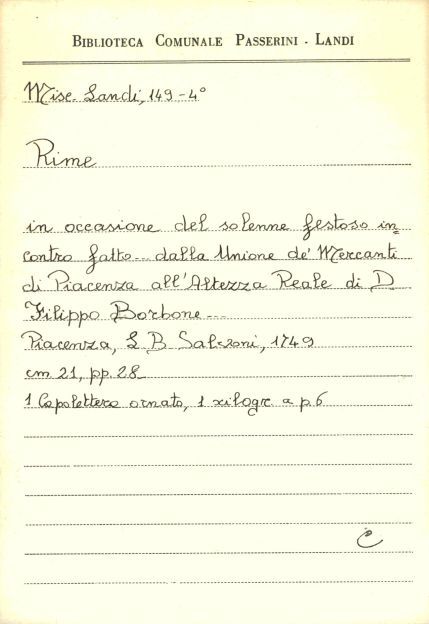 BIBLIOTECA COMUNALE PASSERINI - LANDI
Misc. Landi, 149 - 4°
Rime
in occasione del solenne festoso in=
contro fatto... dalla Unione de' Mercanti
di Piacenza all'Altezza Reale di D
Filippo Borbone...
Piacenza, L B Salvoni, 1749
cm 21, pp. 28
1 Capolettera ornato, 1 xilogr a p 6
C